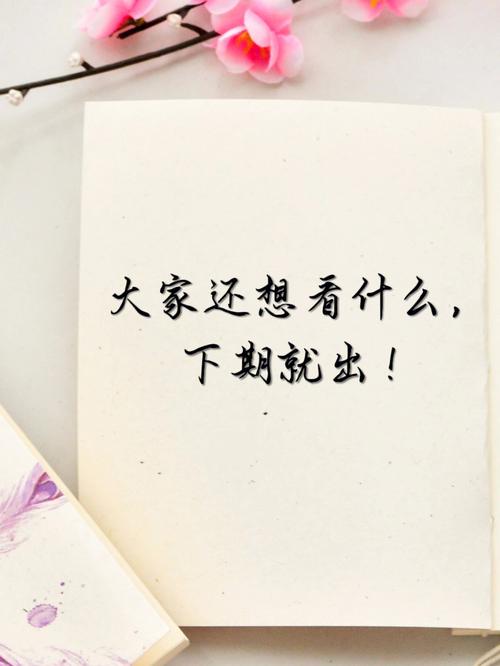 大家还想看什么，
下期就出！